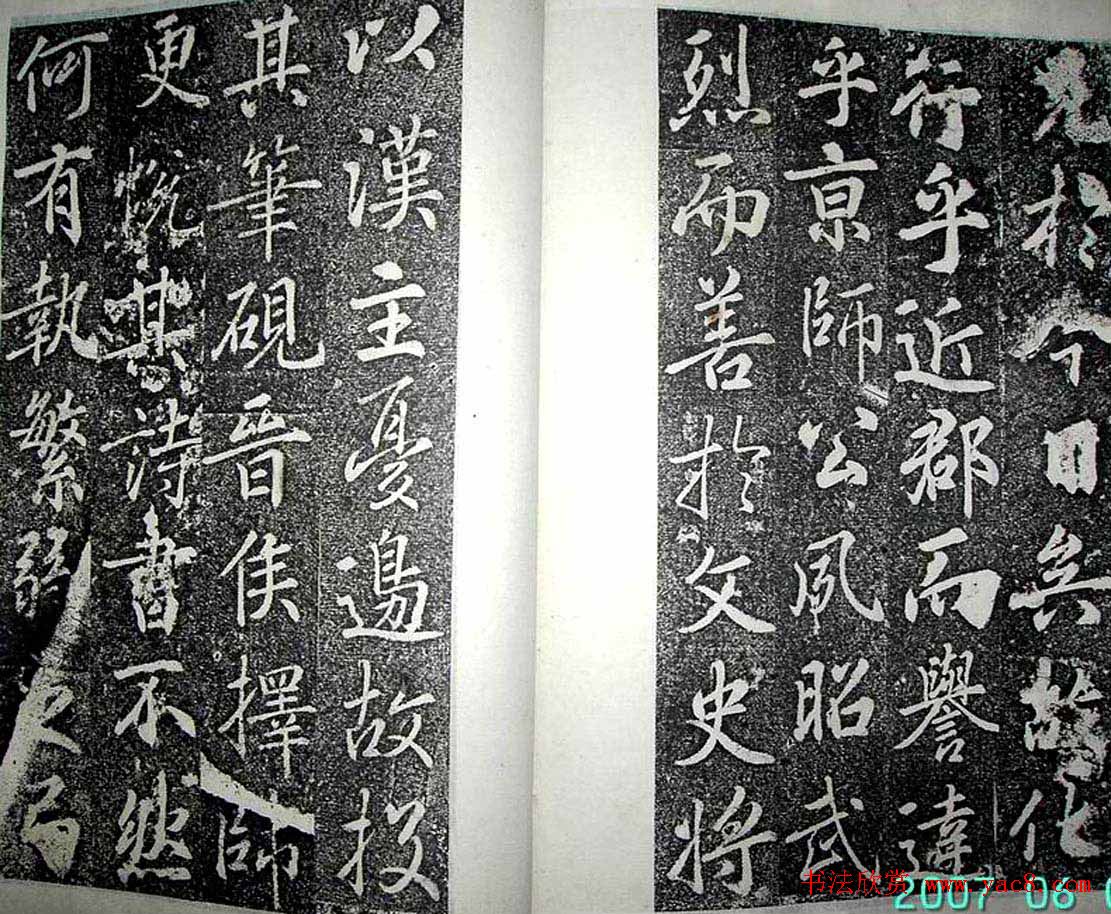 見於今日矣故化
行乎近郡而譽違
乎京師公夙昭武
烈而善於文史將
以漢主憂邊故投
其筆硯晉侯擇帥
更悅其詩書不然
何有執繁弱之弓
书法欣赏 www.yac8.com
2007 06 0